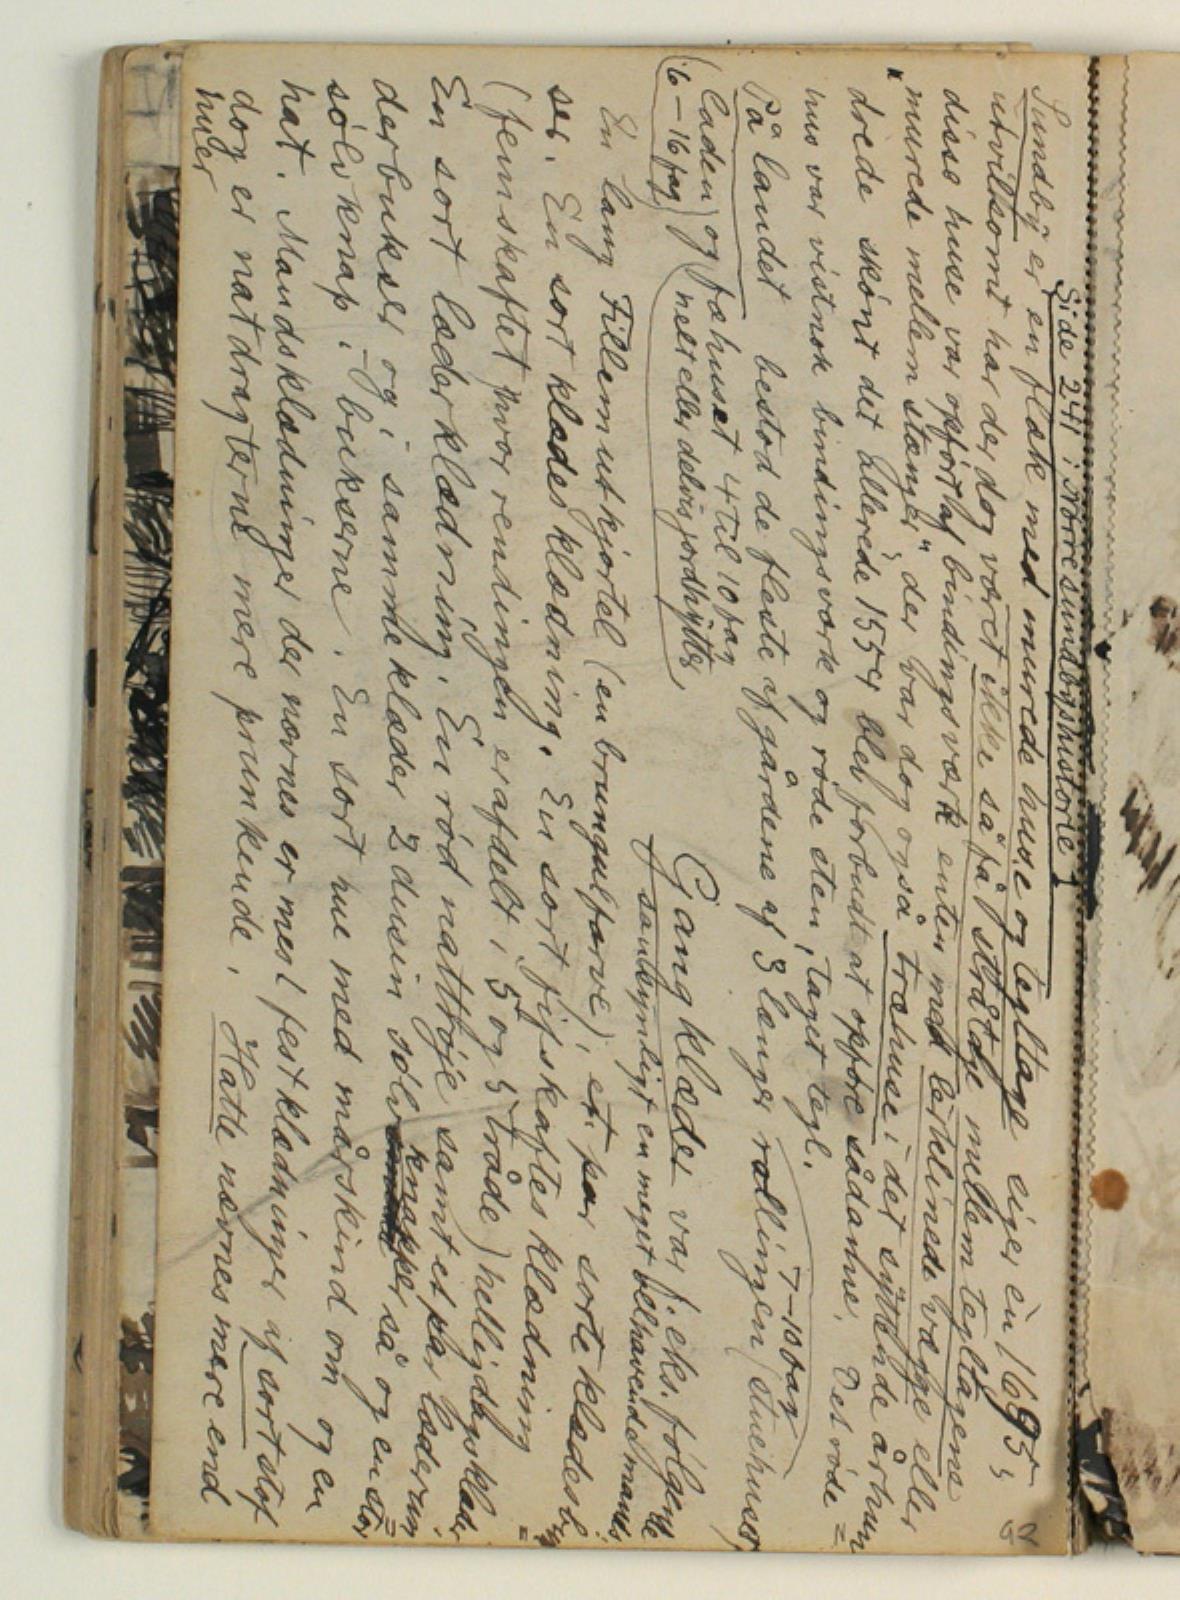 Side 241 i Nørresundbyshistorie
Sundby er en flæk med murede huse og tegltage siger én 1695;
utvilsomt har der dog været ikke så få stråtage mellem tegltagene
disse huse var opført af bindingsværk enten med lerklinede vægge eller
"murede mellem stænger", der var dog også træhuse i det syttende århun
drede skønt det allerede 155er blev forbudt at opføre sådanne. Det røde =
hus var vistnok bindingsværk og røde sten, taget tegl.
7-10 fag
På landet bestod de fleste af gårdene af 3 længer rællingen (stuehuset)
laden) og fæhuset 4 til 10 fag
(6-16 fag) helt eller delvis jordhytter
Gangklæder var f.eks. følgende
sansynligt en meget velhavende mands:
En lang Fillemutkjortel (en brungulfarve), et par sorte klædesb
ser. En sort klædes klædning. En sort fifskaftes klædning =
(femskaftet hvor rendingen er afdelt i 5 og 5 tråde) helligdagsklæder
En sort læderklædning. En rød nattrøje samt et par læderun
derbukser og i samme klæder 2 dusin sølv knapper så og en stor =
sølvknap i bukserne. En sort hue med mårskind om og en
hat. Mandsklædninger der nævnes er mest festklædninger af sort stof
dog er natdragterne mere prunkende. Hatte nævnes mere end
huer
92